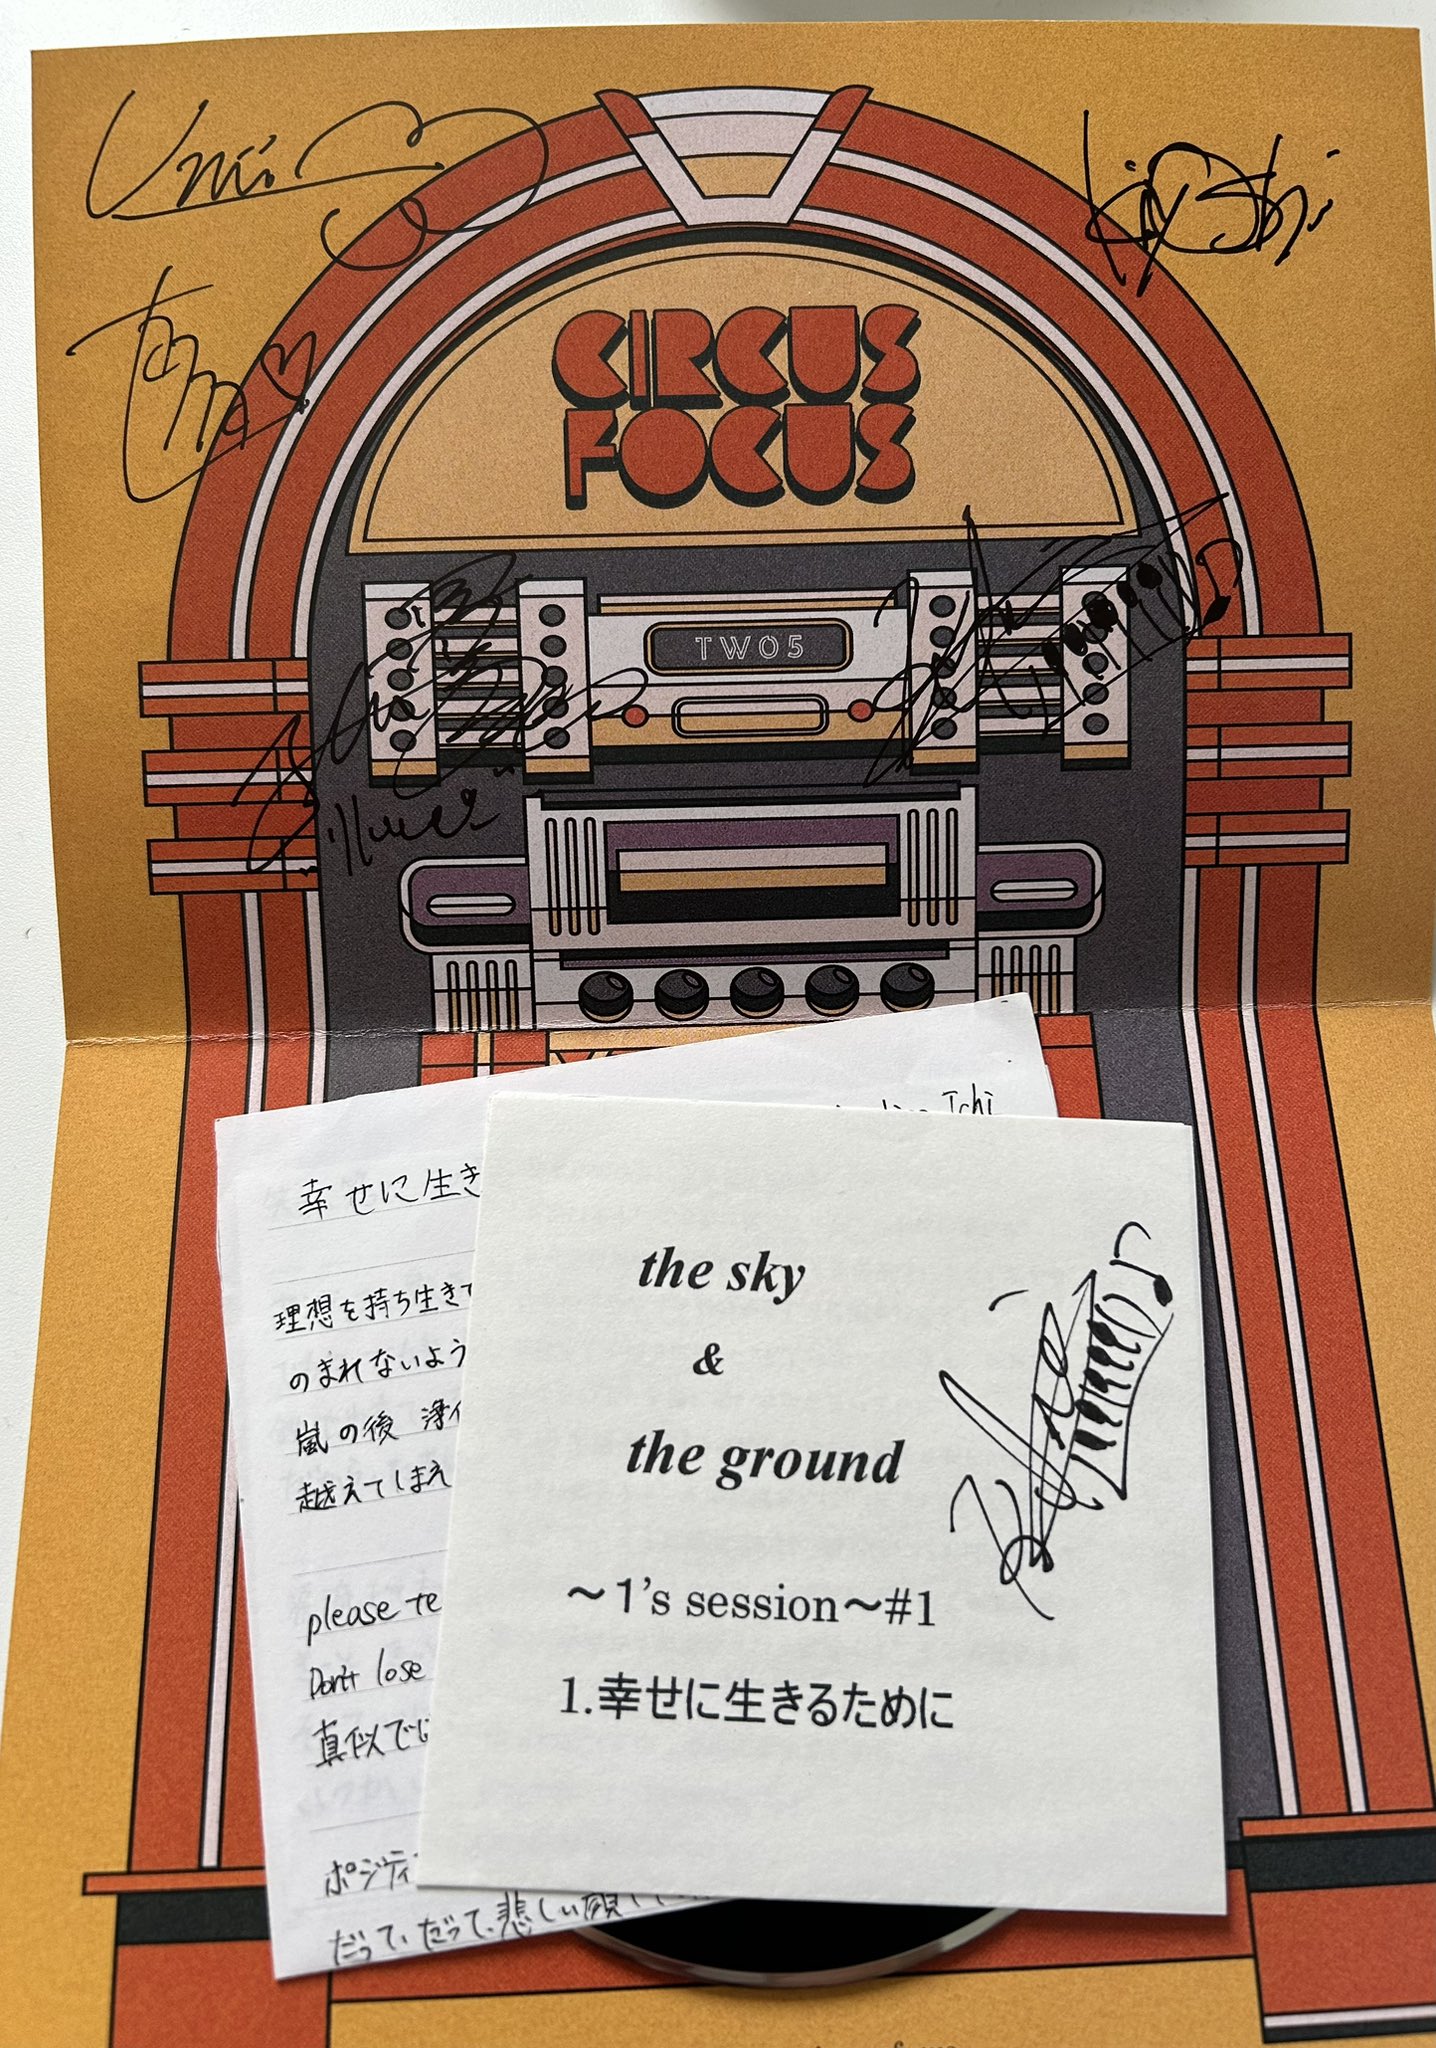 Umi
Kiyoshi
CIRCUS
FOCUS
TWO5
Ichi
幸せに生き
理想を持ち生きて
のまれないよう
嵐の後
越えてしまえ
please te
Don't lose
真似でに
ポジティ
だって、だって、悲しい顔
the sky
&
the ground
～1's session～#1
1.幸せに生きるために